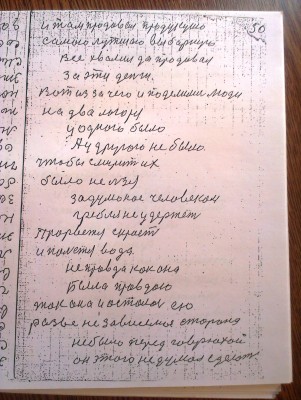 50
и там продовал продукцию
самою лутшою выбарную
Все хвалил да продовал
За эти денги.
Вот из за чего и поделили люди
на два лагоря
у одного было
А у другого не было
чтобы смирит их
было не лзя
задуманое человеком
гребля не удержет
Прорвется скрозт
и полется вода
неправда как она
была правдою
так она и осталос ею
разве не зависимая сторона
небыло перед говрухой
он этого не думал сделат